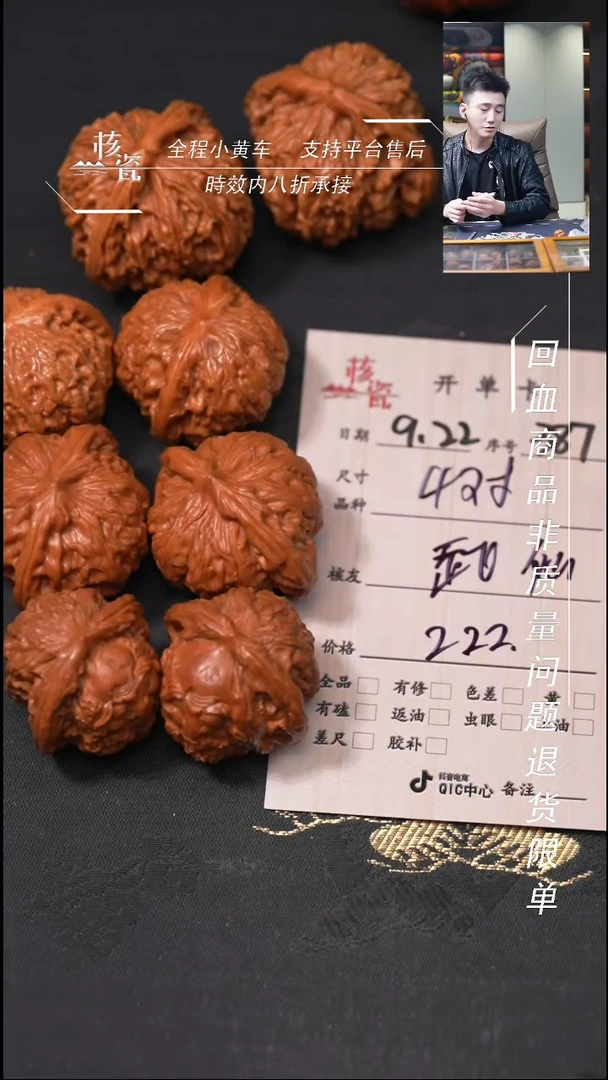 核瓷
全程小黄车 支持平台售后
時效内八折承接
回血商品非质量问题退货限单
核瓷
开单卡
日期 9.22 序号 387
尺寸
品种 4对
核友
价格 222.
全品 有修 色差 黄
有磕 返油 虫眼 油
差尺 胶补
抖音电商
QIC中心 备注